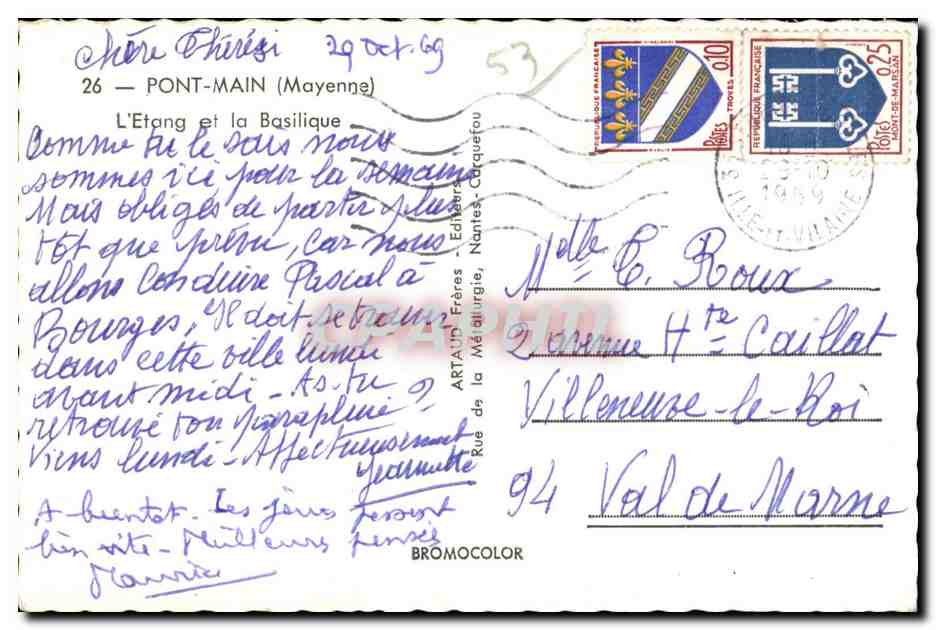 Chère Thérèse 29 Oct. 69
53
26 — PONT-MAIN (Mayenne)
L'Etang et la Basilique
Comme tu le sais nous
sommes ici pour la semaine
Mais obligés de partir plus
tôt que prévu, car nous
allons conduire Pascal à
Bourges, Il doit se trouver
dans cette ville lundi
avant midi - As-tu
retrouvé ton parapluie ?
Viens lundi - Affectueusement
Jeannette
A bientôt - Les jours passent
bien vite - Meilleures pensées
Maurice
ARTAUD Frères - Editeurs
Rue de la Métallurgie, Nantes-Carquefou
BROMOCOLOR
CPAPHIL
REPUBLIQUE FRANÇAISE
0,10
POSTES
TROYES
REPUBLIQUE FRANÇAISE
0,25
POSTES
MONT-DE-MARSAN
1969
ILLE-ET-VILAINE
Melle T. Roux
2 avenue Hte Caillat
Villeneuve-le-Roi
94 Val de Marne